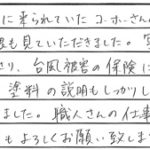 に来られていたコーホーさん
も見ていただきました。
り、台風被害の保険に
塗料の説明もしっかりし
ました。職人さんの仕事
もよろしくお願い致しま